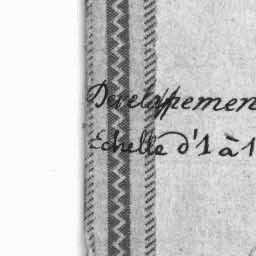 Developpemen
Echelle d'1 à 1